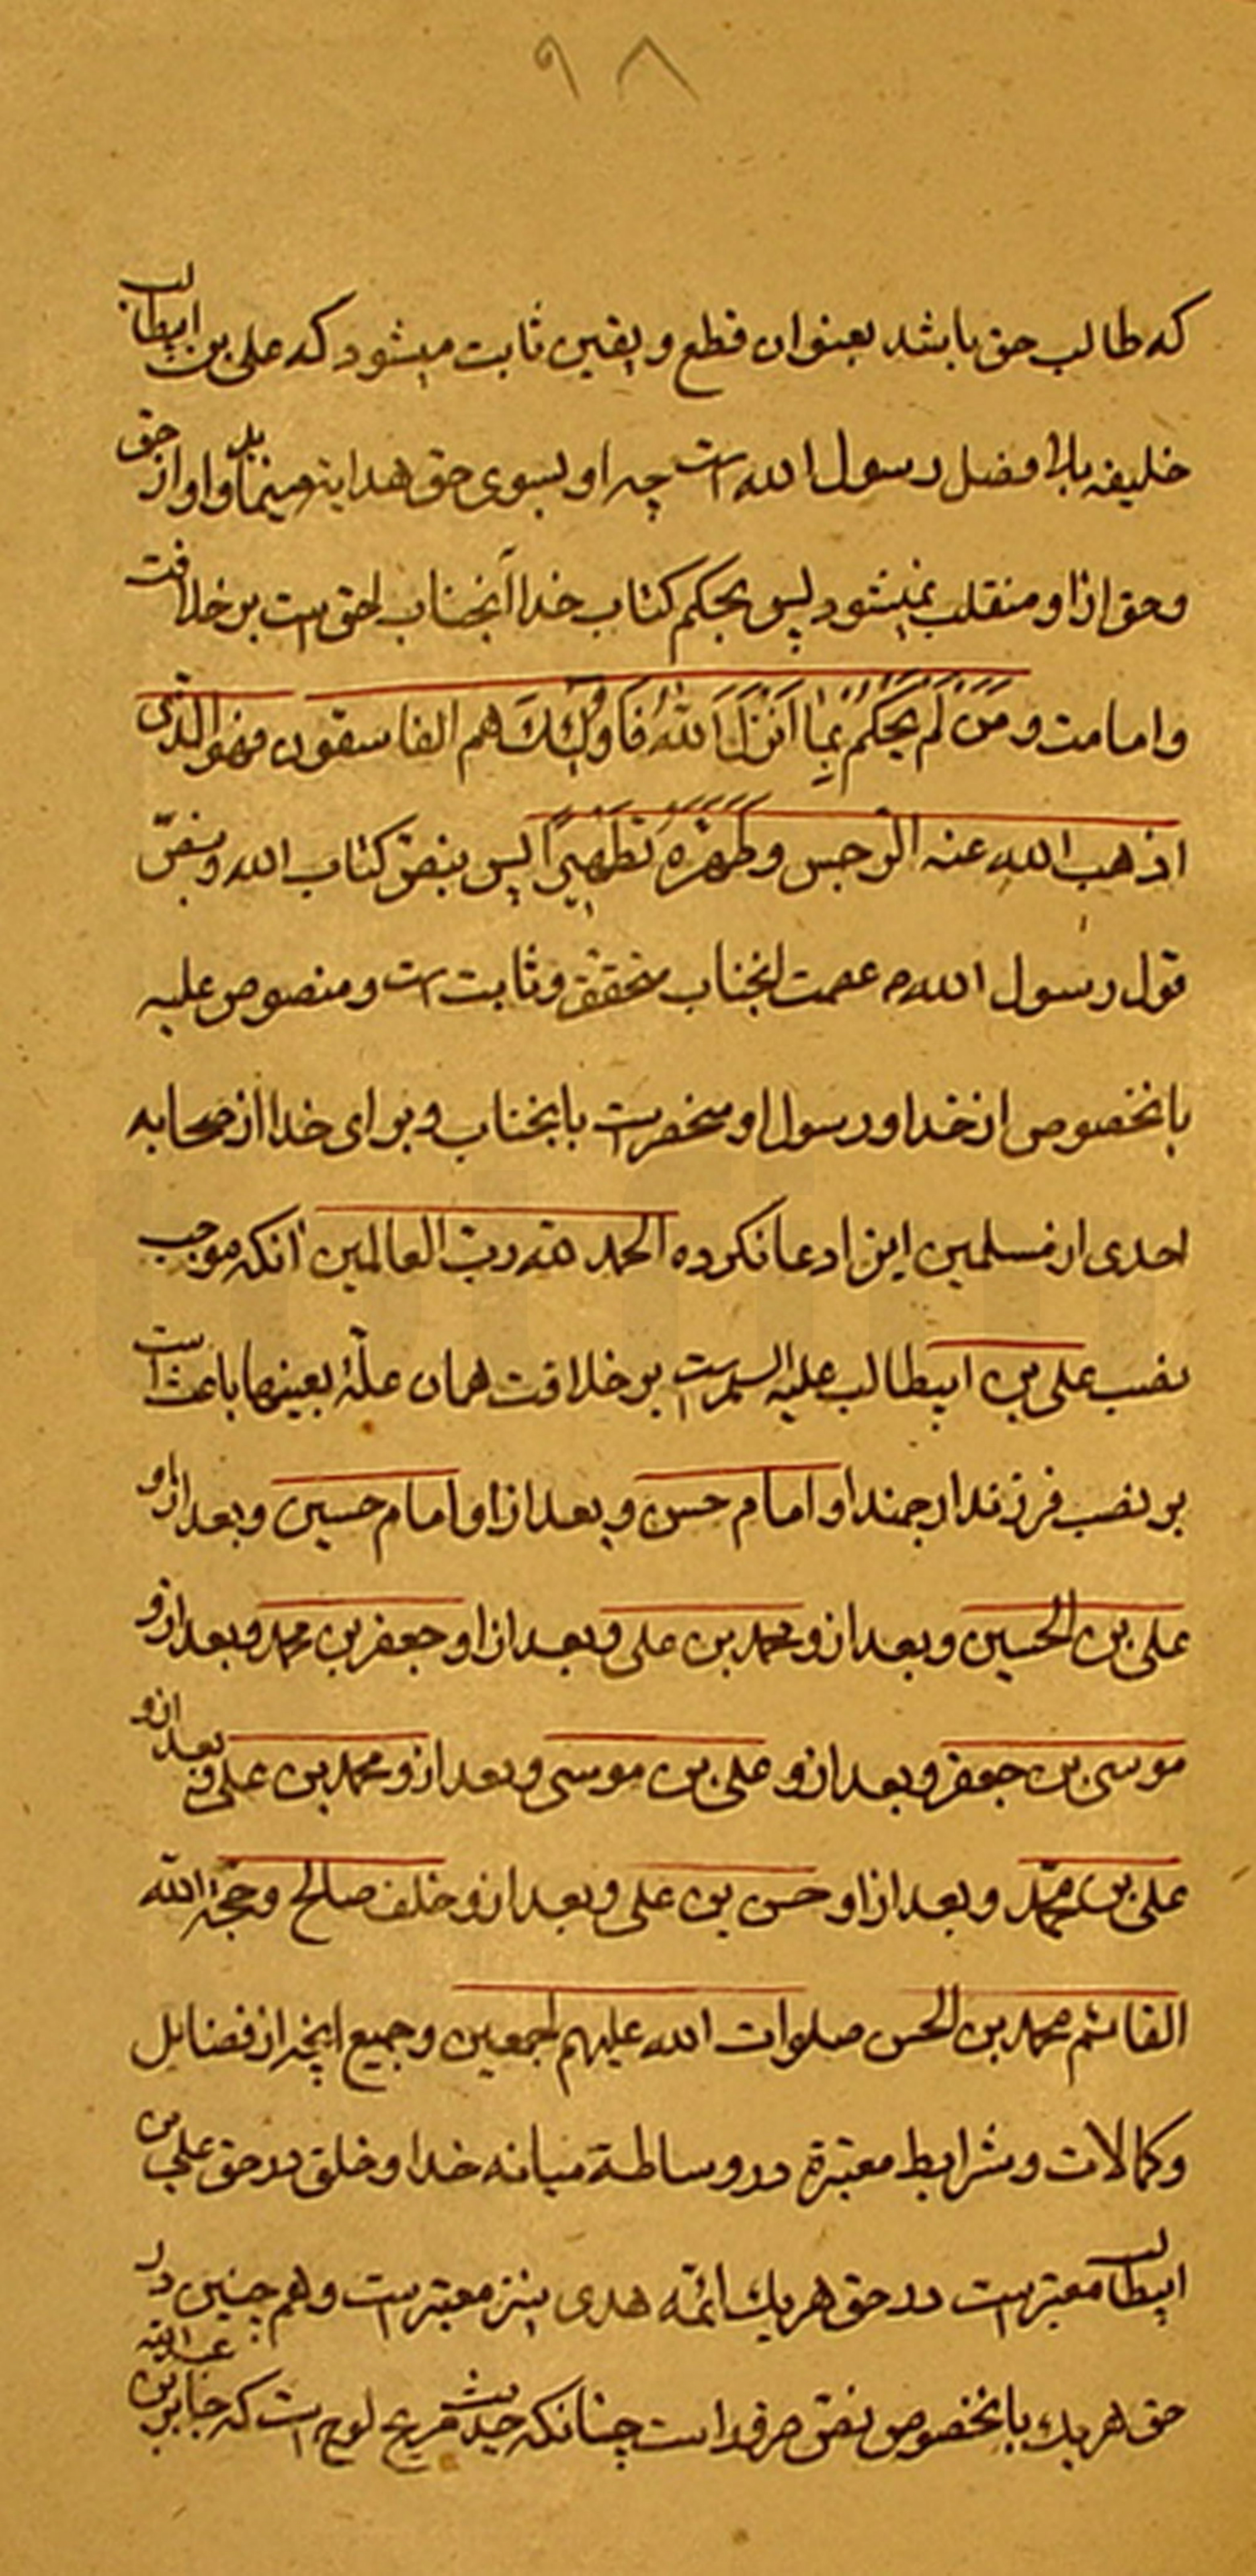 ۹۸
که طالب حق باشد بعنوان قطع و یقین ثابت میشود که علی بن ابیطالب
خلیفه بلا فصل رسول الله است چه او بسوی حق هدایة مینماید و او از حق
و حق از او منقلب نمیشود پس بحکم کتاب خدا آنجناب احق است بر خلافت
و امامت و مَن لَم یَحکُم بِما اَنزَلَ اللهُ فَاُولئِکَ هم الفاسقون فهو الذی
اذهب الله عنه الرجس و طَهَّرَهُ تَطهیراً پس بنص کتاب الله و بنصّ
قول رسول الله ص عصمت انجناب متحقق و ثابت است و منصوص علیه
بالخصوص از خدا و رسول او منحصر است بانجناب و برای خدا از صحابه
احدی از مسلمین این ادعا نکرده الحمد لله ربّ العالمین آنکه موجب
نصب علی بن ابیطالب علیه السلام است بر خلافت همان علّة بعینها باعث است
بر نصب فرزند ارجمند او امام حسن و بعد از او امام حسین و بعد از او
علی بن الحسین و بعد ازو محمد بن علی و بعد از او جعفر بن محمد و بعد ازو
موسی بن جعفر و بعد ازو علی بن موسی و بعد ازو محمد بن علی و بعد ازو
علی بن محمّد و بعد از او حسن بن علی و بعد ازو خلف صالح و حجة الله
القائم محمد بن الحسن صلوات الله علیهم اجمعین و جمیع انچه از فضایل
و کمالات و شرایط معتبرة در وساطة میانه خدا و خلق در حق علی بن
ابیطالب معتبر است در حق هر یک ائمّه هدی نیز معتبر است و هم چنین در
حق هر یک بالخصوص نص صرف است چنانکه حدیث صریح لوح است که جابر بن عبد الله